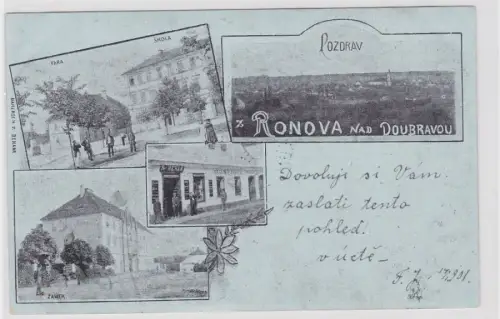 FARA
ŠKOLA
POZDRAV
Z RONOVA NAD DOUBRAVOU
ZÁMEK
Dovoluji si Vám
zaslati tento
pohled!
v úctě-